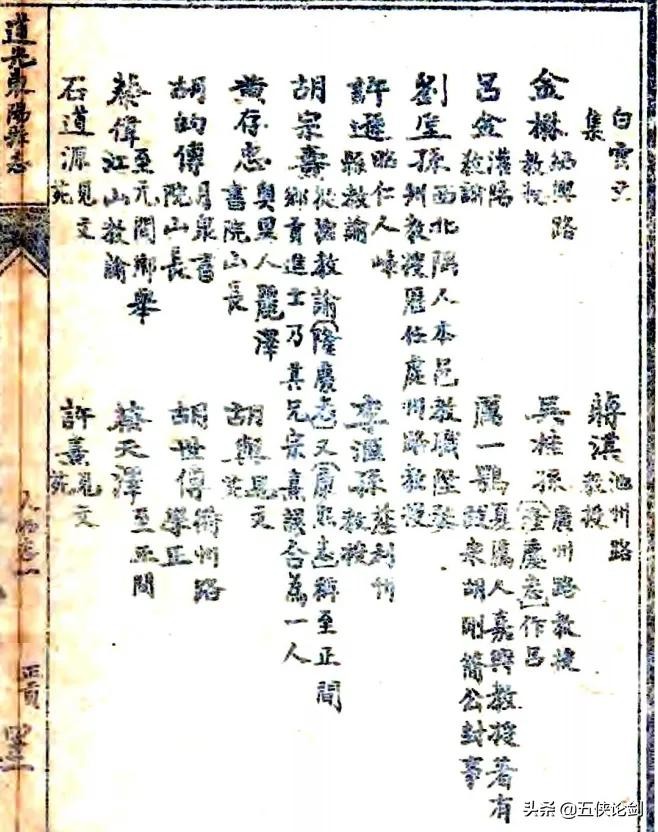 白雲文
集
蔣淇 池州路
教授
金楙 紹興路
教授
吳桂孫 廣州路教授
隆慶志作呂
呂金 灌陽
教諭
厲一鶚 夏厲人嘉興教授著有
東胡剛簡公封事
劉垕孫 西北隅人本邑教職陞婺
州教授歷任處州路教授
許遜 昭仁人嵊
縣教諭
李滙孫 利州
教授
胡宗燾 教諭隆慶志又康熙志稱至正間
鄉貢進士乃其兄宗熹誤合為一人
黃存忠 奧里人麗澤
書院山長
胡與 見文
胡昀傳 月泉書
院山長
胡世傳 衢州路
學正
蔡偉 至元間鄉舉
江山教諭
蔡天澤 至正間
石道源 見文
苑
許熹 見文
苑
道光東陽縣志
人物卷一
正貢
头条 @五侠论剑